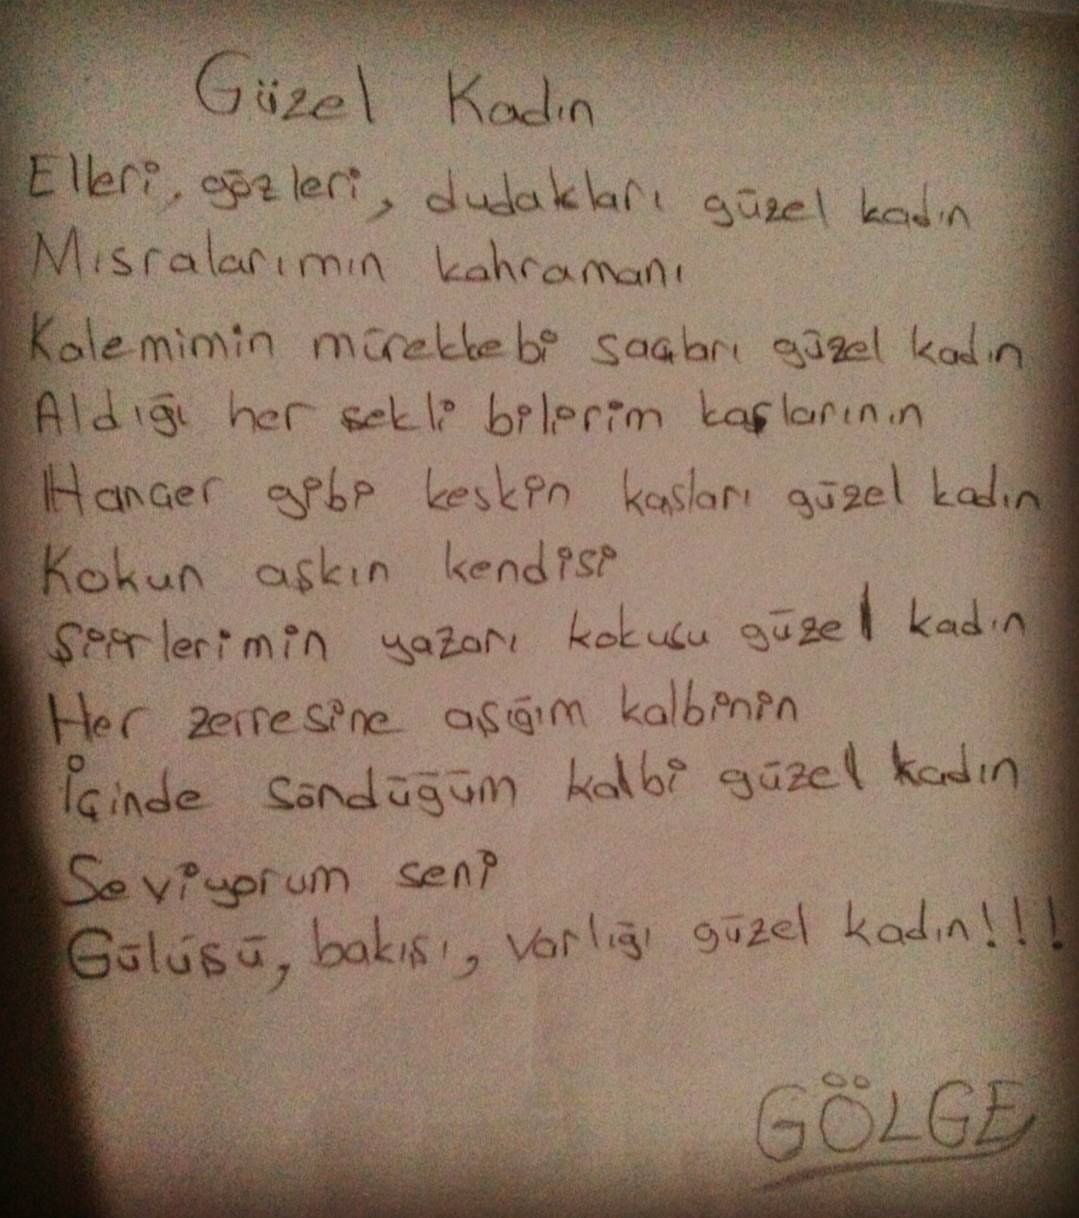 Güzel Kadın
Elleri, gözleri, dudakları güzel kadın
Mısralarımın kahramanı
Kalemimin mürekkebi saçları güzel kadın
Aldığı her şekli bilirim kaşlarının
Hançer gibi keskin kaşları güzel kadın
Kokun aşkın kendisi
Şiirlerimin yazarı kokusu güzel kadın
Her zerresine aşığım kalbinin
İçinde söndüğüm kalbi güzel kadın
Seviyorum seni
Gülüşü, bakışı, varlığı güzel kadın!!!
GÖLGE